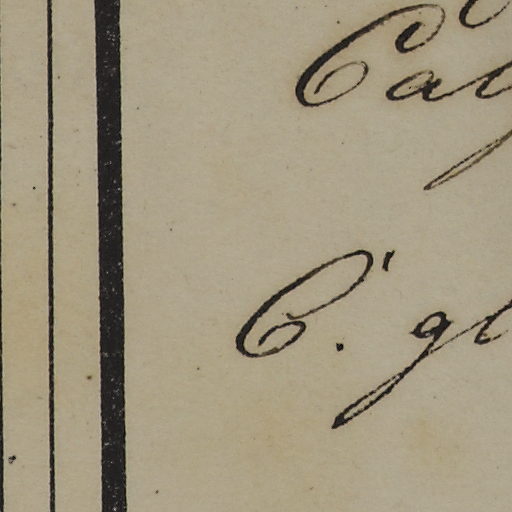 Cay
C. gl